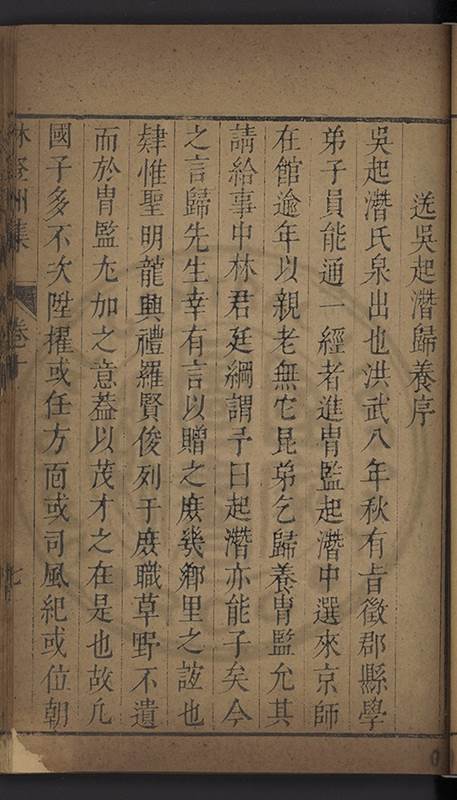 送吳起濳歸養序
吳起濳氏泉出也洪武八年秋有旨徵郡縣學
弟子員能通一經者進胄監起濳中選來京師
在館逾年以親老無它昆弟乞歸養胄監允其
請給事中林君廷綱謂予曰起濳亦能子矣今
之言歸先生幸有言以贈之庻幾鄉里之誼也
肄惟聖明龍興禮羅賢俊列于庻職草野不遺
而於胄監尤加之意葢以茂才之在是也故凡
國子多不次陞擢或任方面或司風紀或位朝
林登州集
卷十
七